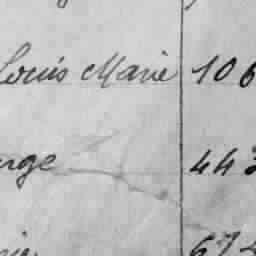 Louis Marie 106
rge 443
674